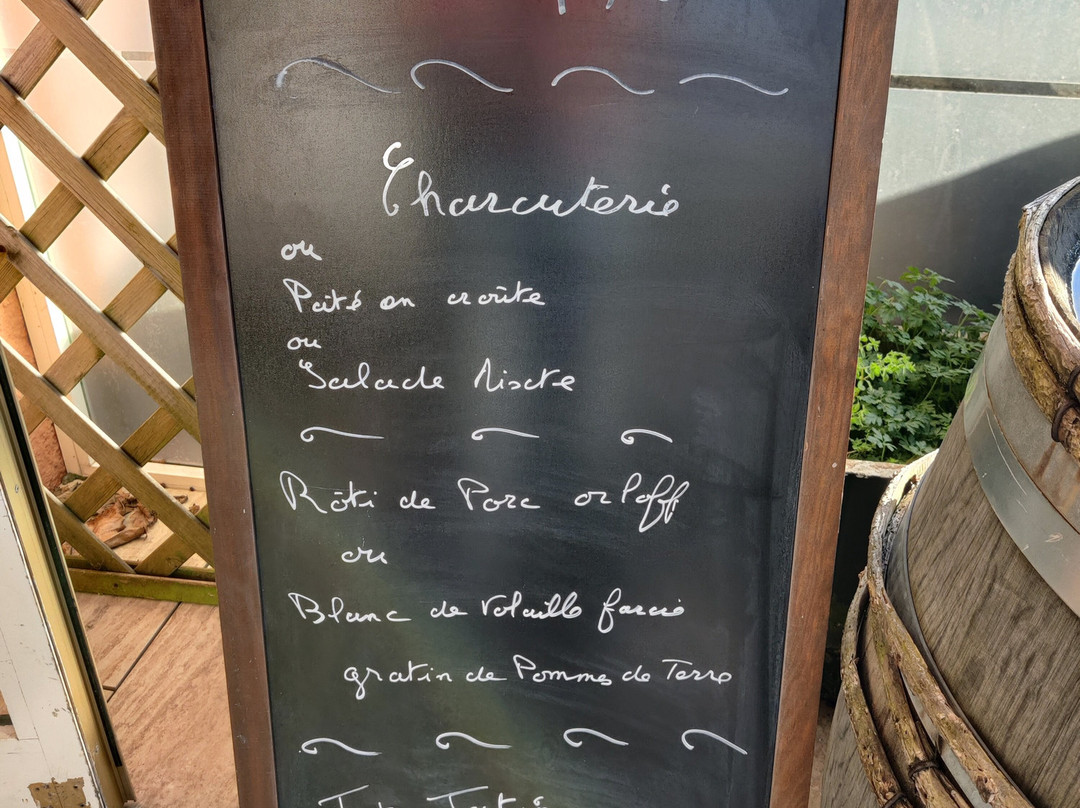 Charcuterie
ou
Pâté en croûte
ou
Salade
Rôti de Porc orloff
ou
Blanc de Volaille farcie
gratin de Pommes de Terre